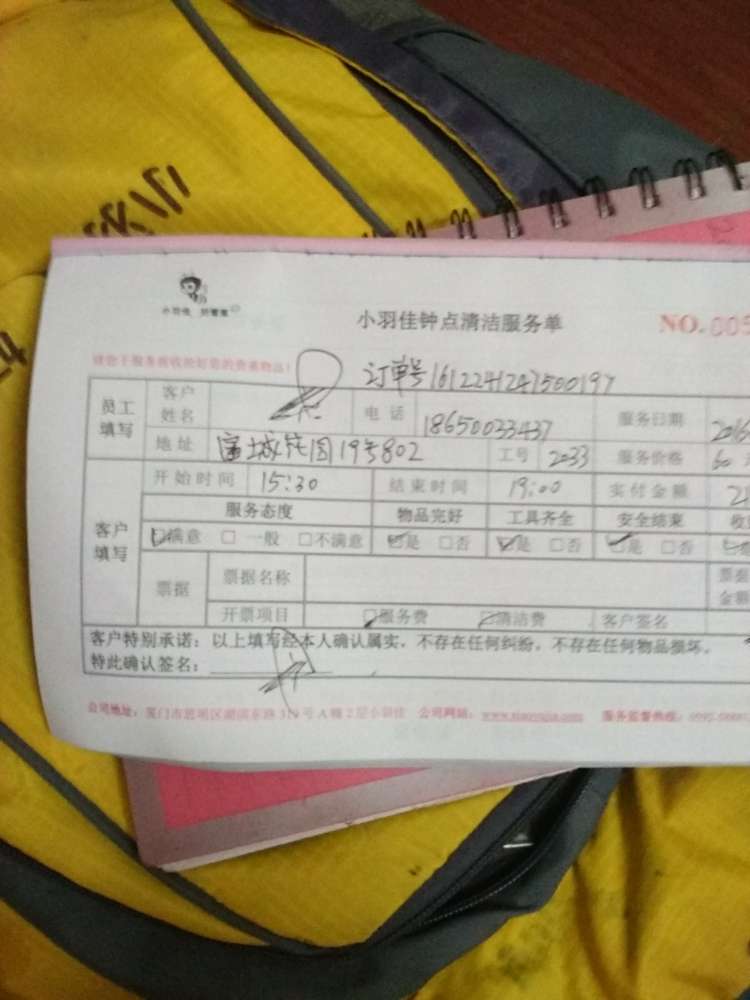 小羽佳 好管家
小羽佳钟点清洁服务单
NO.005
请给于服务前收拾好您的贵重物品!
订单号1612241247500197
员工填写 客户姓名 电话 18650033437 服务日期 2016
地址 富城花园19号802 工号 2033 服务价格 60
客户填写 开始时间 15:30 结束时间 19:00 实付金额 21
服务态度 物品完好 工具齐全 安全结束
满意 一般 不满意 是 否 是 否 是 否
票据 票据名称 票据金额
开票项目 服务费 清洁费 客户签名
客户特别承诺:以上填写经本人确认属实,不存在任何纠纷,不存在任何物品损坏,
特此确认签名:
公司地址:厦门市思明区湖滨东路319号A幢2层小羽佳 公司网站: 服务监督热线: